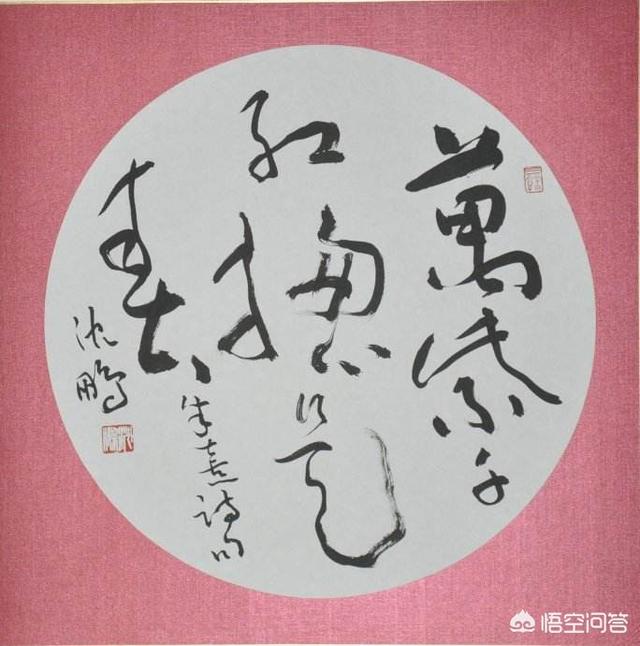 萬紫千
紅總是
春
朱熹詩句
沈鵬
悟空问答